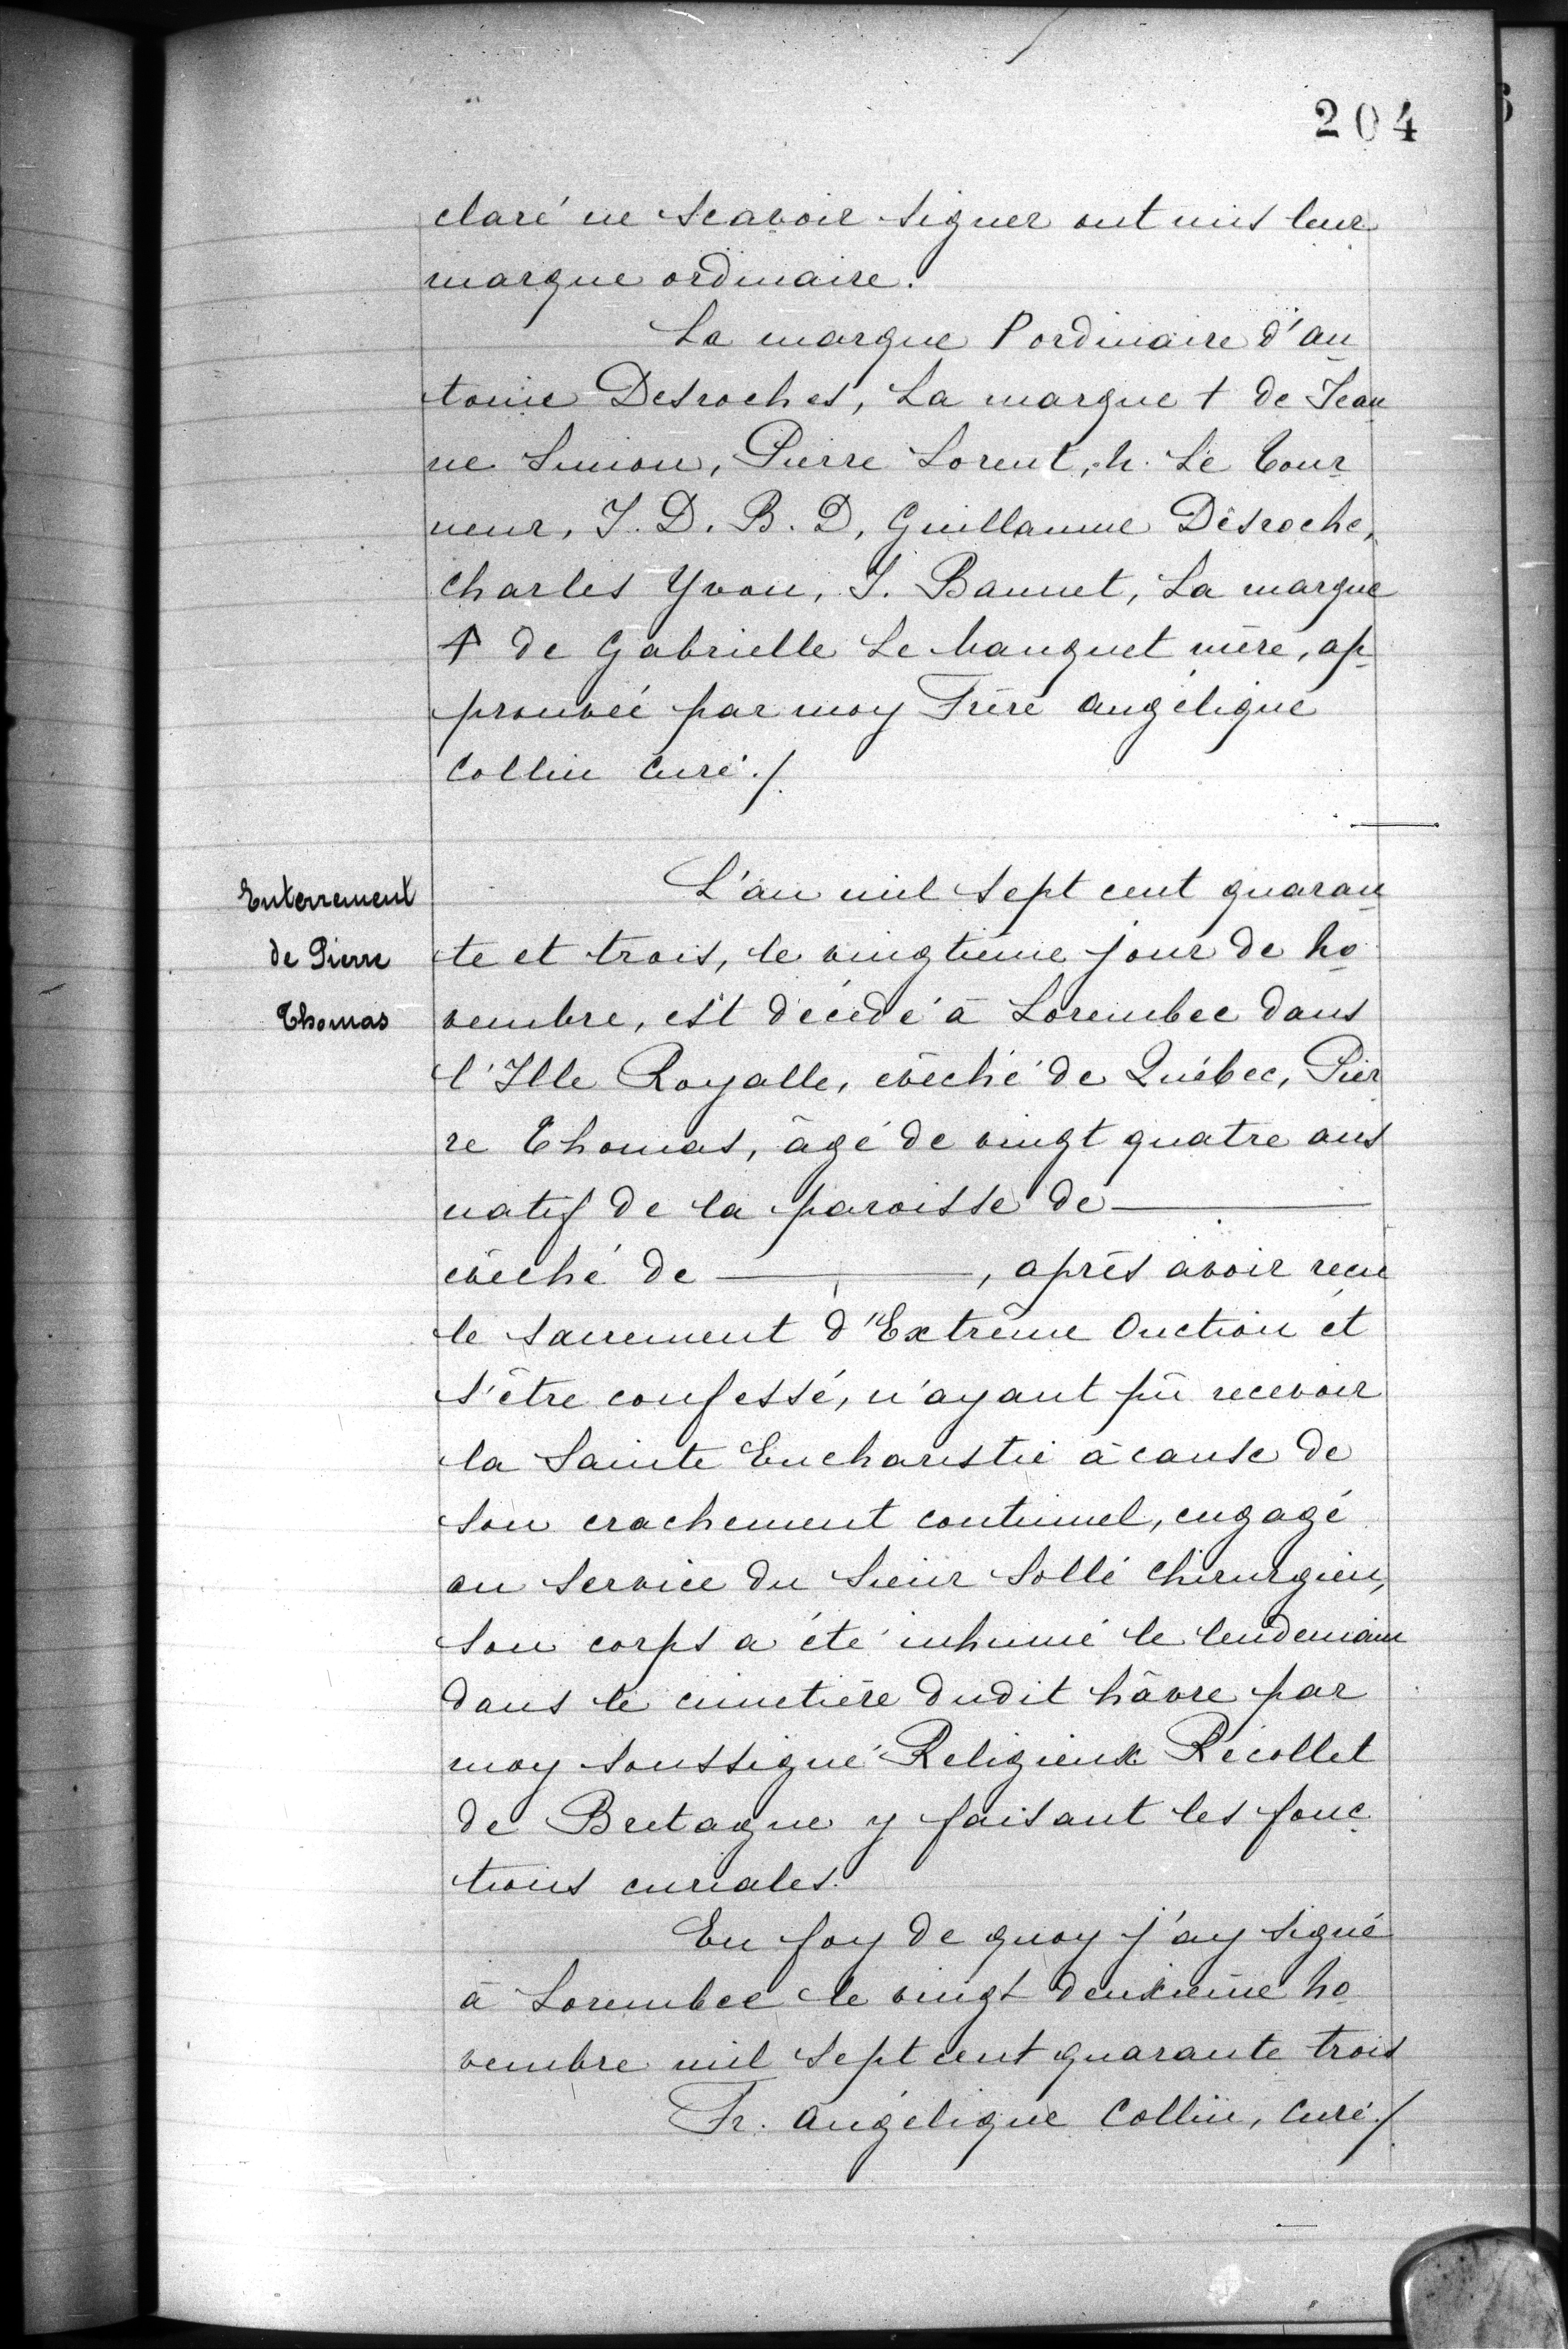 204
claré ne scavoir signer ont mis leur
marque ordinaire.
La marque P ordinaire d'an
toine Desroches, La marque + de Jean
ne Simon, Pierre Lorent, N. Le Tour
neur, J. D. B. D, Guillaume Desroche,
Charles Yvon, J. Bannet, La marque
+ de Gabrielle Le Manquet mère, ap
prouvée par moy Frère angélique
Collin Curé./
Enterrement
de Pierre
Thomas
L'an mil sept cent quaran
te et trois, le vingtième jour de No
vembre, est décédé à Lorembec dans
l'Ille Royalle, évêché de Québec, Pier
re Thomas, âgé de vingt quatre ans
natif de la paroisse de ———
évêché de ———, après avoir recu
le sacrement d'Extrême Onction et
s'être confessé, n'ayant pû recevoir
la Sainte Eucharistie à cause de
son crachement continuel, engagé
au service du Sieur Sollé Chirurgien,
son corps a été inhumé le lendemain
dans le cimetière dudit hâvre par
moy soussigné Religieux Récollet
de Bretagne y faisant les fonc
tions curiales.
En foy de quoy j'ay signé
à Lorembec le vingt deuxième No
vembre mil sept cent quarante trois
Fr. angélique Collin, Curé./